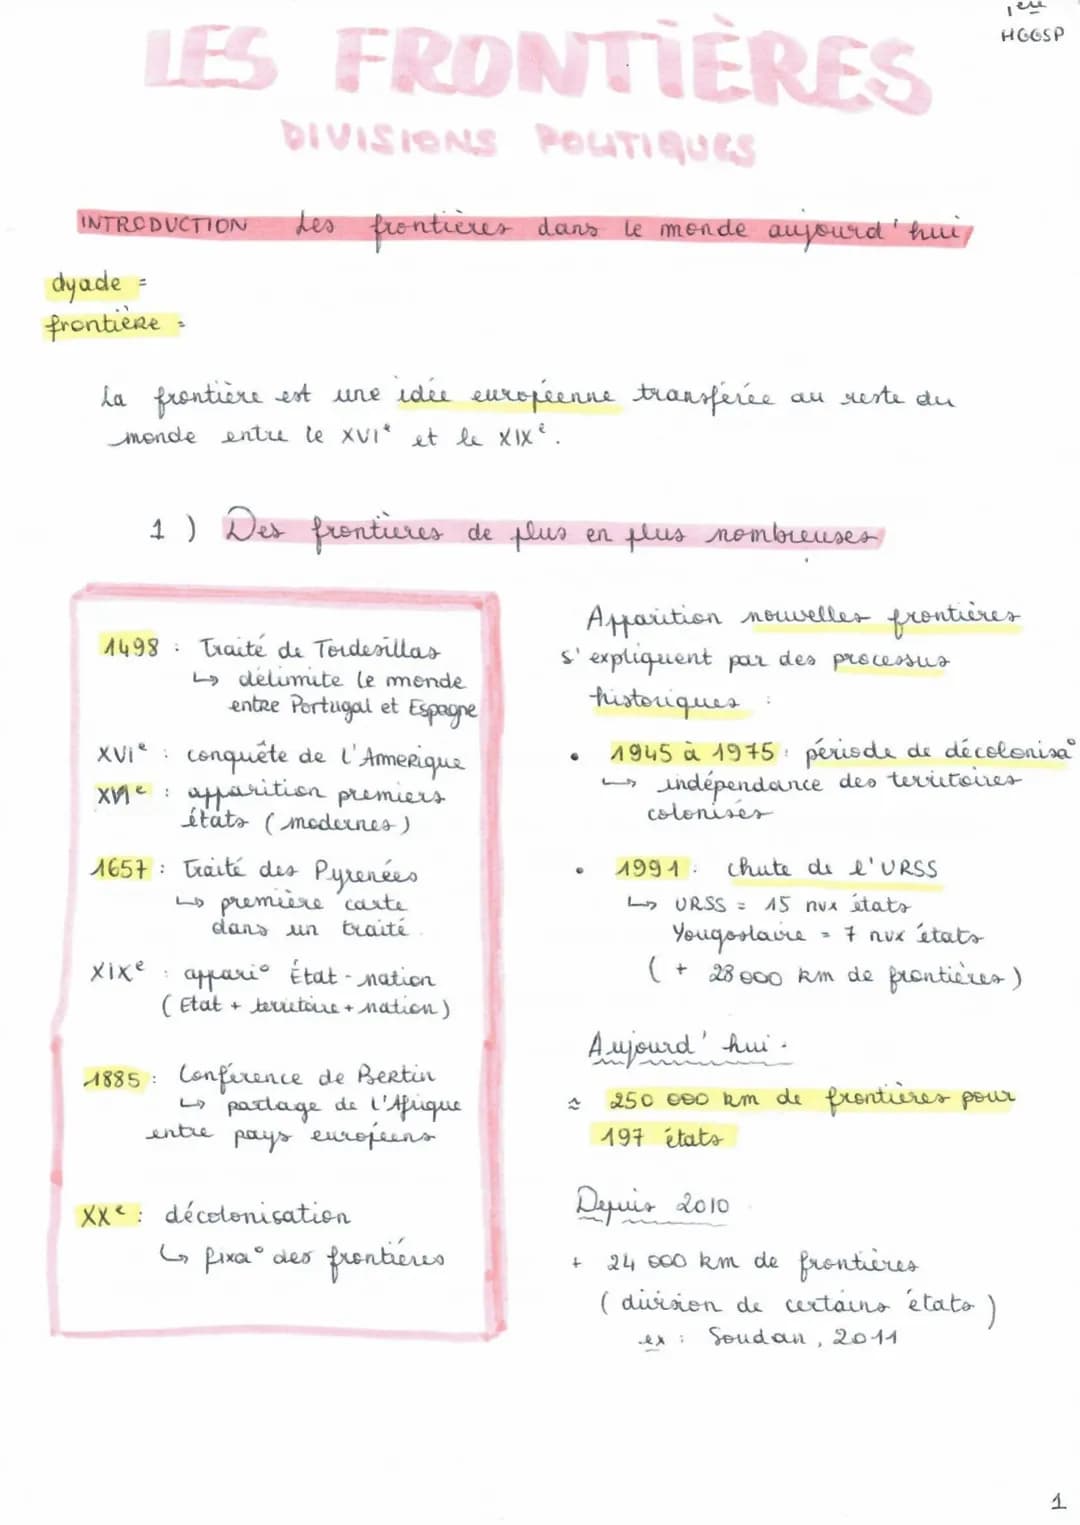 1ère
HGGSP
LES FRONTIÈRES
DIVISIONS POLITIQUES
INTRODUCTION Les frontières dans le monde aujourd'hui
dyade =
frontière =
La frontière est une idée européenne transférée au reste du
monde entre le XVIe et le XIXe.
1) Des frontieres de plus en plus nombreuses
1498 : Traité de Tordesillas
↳ délimite le monde
entre Portugal et Espagne
XVIe : conquête de l'Amerique
XVIe : apparition premiers
états (modernes)
1657 : Traité des Pyrenées
↳ première carte
dans un traité.
XIXe : appari° État-nation
(Etat + territoire + nation)
1885 : Conférence de Berlin
↳ partage de l'Afrique
entre pays européens
XXe : décolonisation
↳ fixa° des frontiéres
Apparition nouvelles frontières
s'expliquent par des processus
historiques :
• 1945 à 1975 : période de décolonisa°
↳ indépendance des territoires
colonisés
• 1991 : chute de l'URSS
↳ URSS = 15 nvx états
Yougoslavie = 7 nvx états
(+ 28 000 km de frontières)
Aujourd'hui.
≈ 250 000 km de frontières pour
197 états
Depuis 2010
+ 24 000 km de frontières
(division de certains états)
ex : Soudan, 2011
1